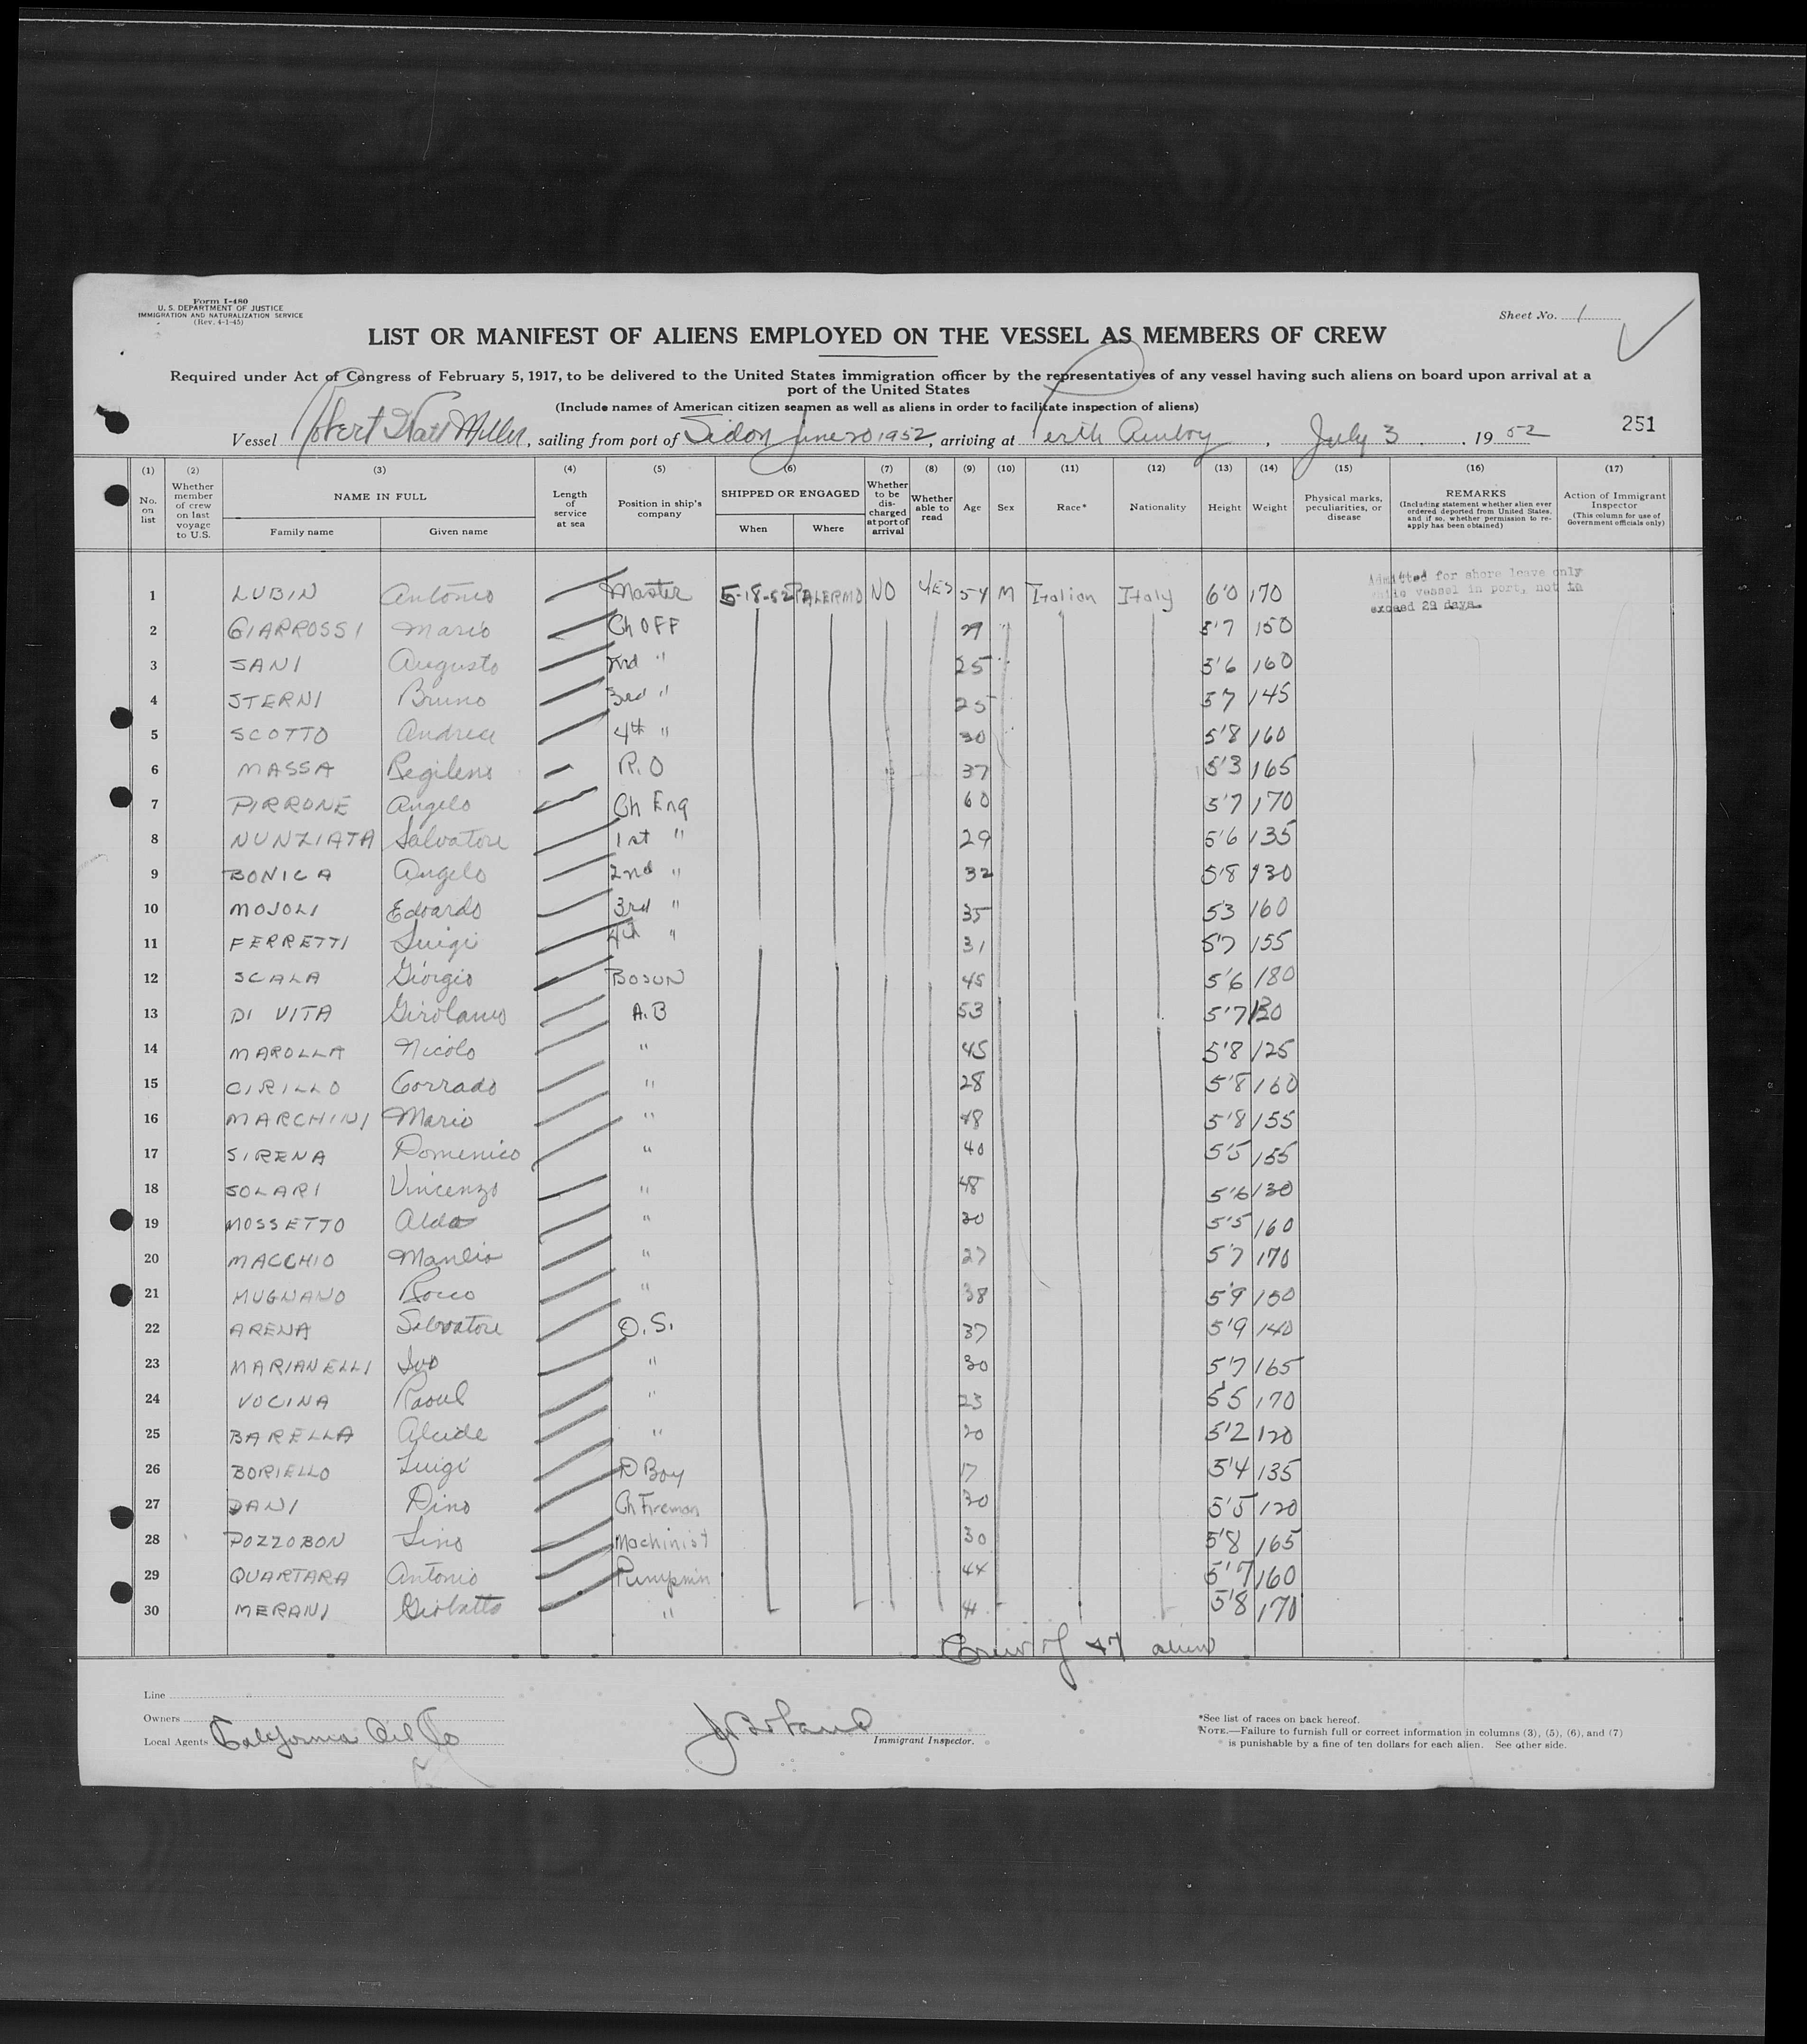 Form I-480
U. S. DEPARTMENT OF JUSTICE
IMMIGRATION AND NATURALIZATION SERVICE
(Rev. 4-1-45)
Sheet No. 1
LIST OR MANIFEST OF ALIENS EMPLOYED ON THE VESSEL AS MEMBERS OF CREW
Required under Act of Congress of February 5, 1917, to be delivered to the United States immigration officer by the representatives of any vessel having such aliens on board upon arrival at a
port of the United States
(Include names of American citizen seamen as well as aliens in order to facilitate inspection of aliens)
251
Vessel Robert Watt Miller, sailing from port of Sidon June 20 1952, arriving at Perth Amboy, July 3, 19 52
(1) (2) (3) (4) (5) (6) (7) (8) (9) (10) (11) (12) (13) (14) (15) (16) (17)
No. on list
Whether member of crew on last voyage to U.S.
NAME IN FULL
Family name Given name
Length of service at sea
Position in ship's company
SHIPPED OR ENGAGED
When Where
Whether to be discharged at port of arrival
Whether able to read
Age Sex Race* Nationality Height Weight
Physical marks, peculiarities, or disease
REMARKS
(Including statement whether alien ever ordered deported from United States, and if so, whether permission to reapply has been obtained)
Action of Immigrant Inspector
(This column for use of Government officials only)
Admitted for shore leave only
while vessel in port, not to
exceed 29 days.
1 LUBIN Antonio Master 5-18-52 PALERMO NO YES 54 M Italian Italy 6'0 170
2 GIARROSSI Mario Ch OFF 29 5'7 150
3 SANI Augusto 2nd " 25 5'6 160
4 STERNI Bruno 3rd " 25 57 145
5 SCOTTO Andrea 4th " 30 5'8 160
6 MASSA R.O 37 5'3 165
7 PIRRONE Angelo Ch Eng 60 5'7 170
8 NUNZIATA Salvatore 1st " 29 5'6 135
9 BONICA Angelo 2nd " 32 5'8 130
10 MOJOLI Edoardo 3rd " 35 53 160
11 FERRETTI Luigi 4th " 31 5'7 155
12 SCALA Giorgio BOSUN 45 5'6 180
13 DI VITA Girolamo A.B 53 5'7 130
14 MAROLLA Nicolo " 45 5'8 125
15 CIRILLO Corrado " 28 5'8 160
16 MARCHINI Mario " 48 5'8 155
17 SIRENA Domenico " 40 5'5 155
18 SOLARI Vincenzo " 48 5'6 130
19 MOSSETTO Aldo " 30 5'5 160
20 MACCHIO Manlio " 27 5'7 170
21 MUGNANO Rocco " 38 5'9 150
22 ARENA Salvatore O.S. 37 5'9 140
23 MARIANELLI Ivo " 30 5'7 165
24 VOCINA Raoul " 23 5'5 170
25 BARELLA Alcide " 20 5'2 120
26 BORIELLO Luigi D Boy 17 5'4 135
27 DANI Dino Ch Fireman 30 5'5 120
28 POZZOBON Lino Machinist 30 5'8 165
29 QUARTARA Antonio Pumpmin 44 5'7 160
30 MERANI Giobatta " 41 5'8 170
Crew of 47 alien
Line
Owners
Local Agents California Oil Co
Immigrant Inspector.
*See list of races on back hereof.
NOTE.—Failure to furnish full or correct information in columns (3), (5), (6), and (7)
is punishable by a fine of ten dollars for each alien. See other side.